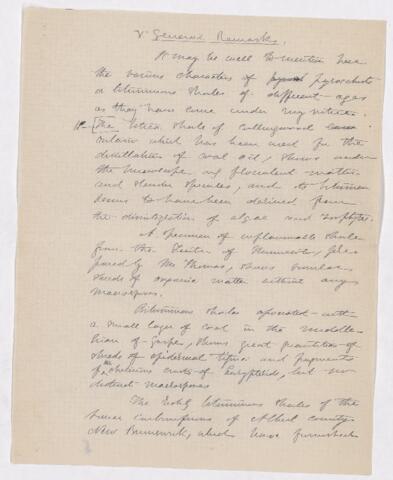 V. General Remarks.
It may be well to mention here
the various characters of pyroschists
or bituminous shales of different ages
as they have come under my notice.
The Utica shale of Collingwood
Ontario which has been used for the
distillation of coal oil, shows under
the microscope only flocculent matter
and slender spicules, and its bitumen
seems to have been derived from
the disintegration of algae and zoophytes.
A specimen of inflammable shale
from the of Minnesota, pre-
pared by Mr Thomas, shows similar
shreds of organic matter without any
macrospores.
Bituminous shales associated with
a small layer of coal in the middle
Erian of Gaspé, shows great quantities of
shreds of epidermal tissue and fragments
of chitinous crusts of Eurypterids, but no
distinct macrospores
The Richly bituminous shales of the
lower carboniferous of Albert county
New Brunswick, which have furnished